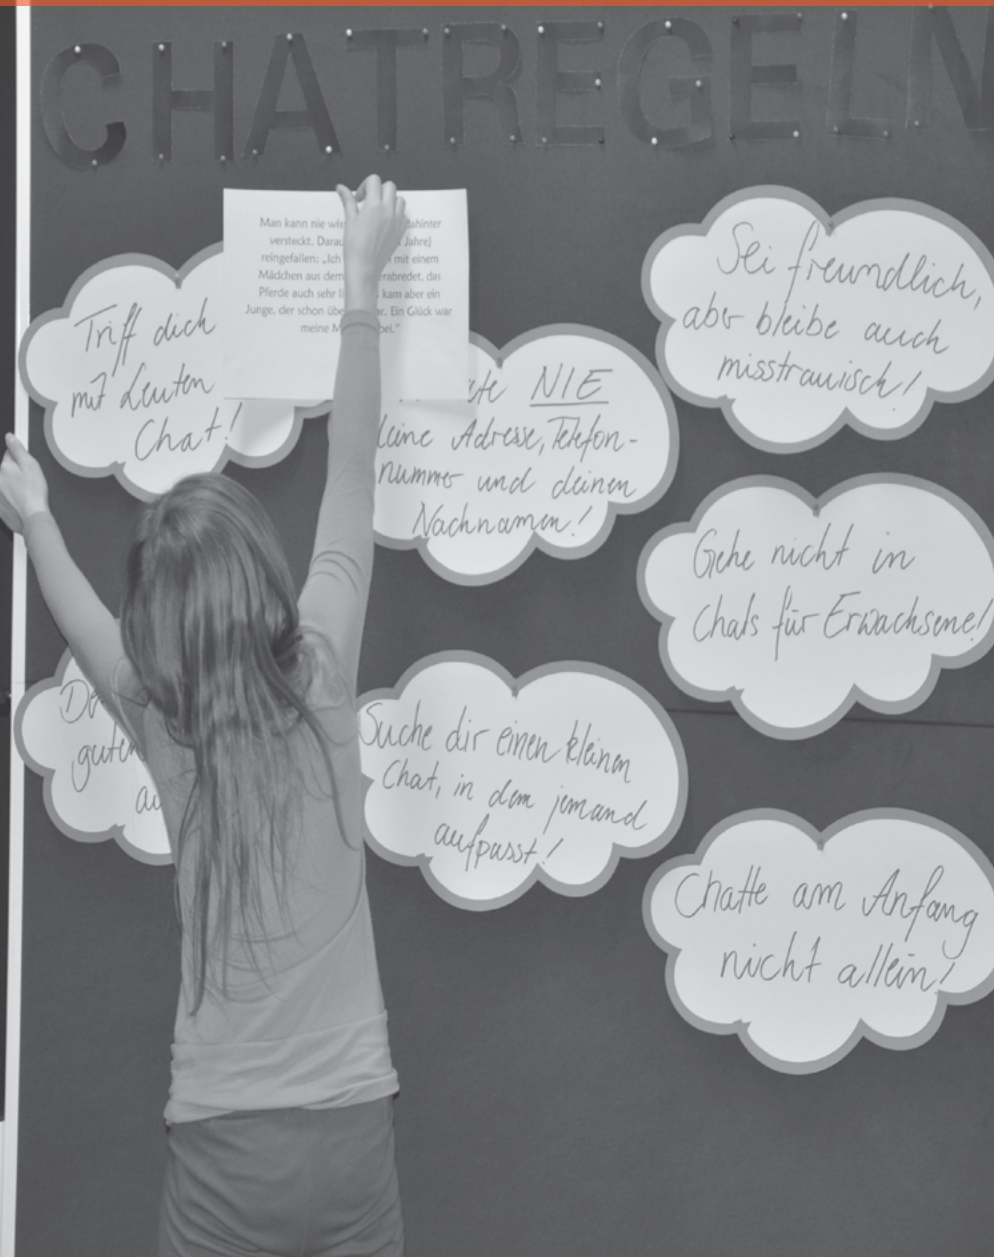 CHATREGELN
Man kann nie dahinter
versteckt. Jahre)
reingefallen: „Ich mit einem
Mädchen aus dem das
Pferde auch sehr kam aber ein
Junge, der schon Ein Glück war
meine
Triff dich
mit Leuten
Chat!
NIE
Adresse, Telefon-
nummer und deinen
Nachnamen!
Sei freundlich,
aber bleibe auch
misstrauisch!
Gehe nicht in
Chats für Erwachsene!
guten
Suche dir einen kleinen
Chat, in dem jemand
aufpasst!
Chatte am Anfang
nicht allein!